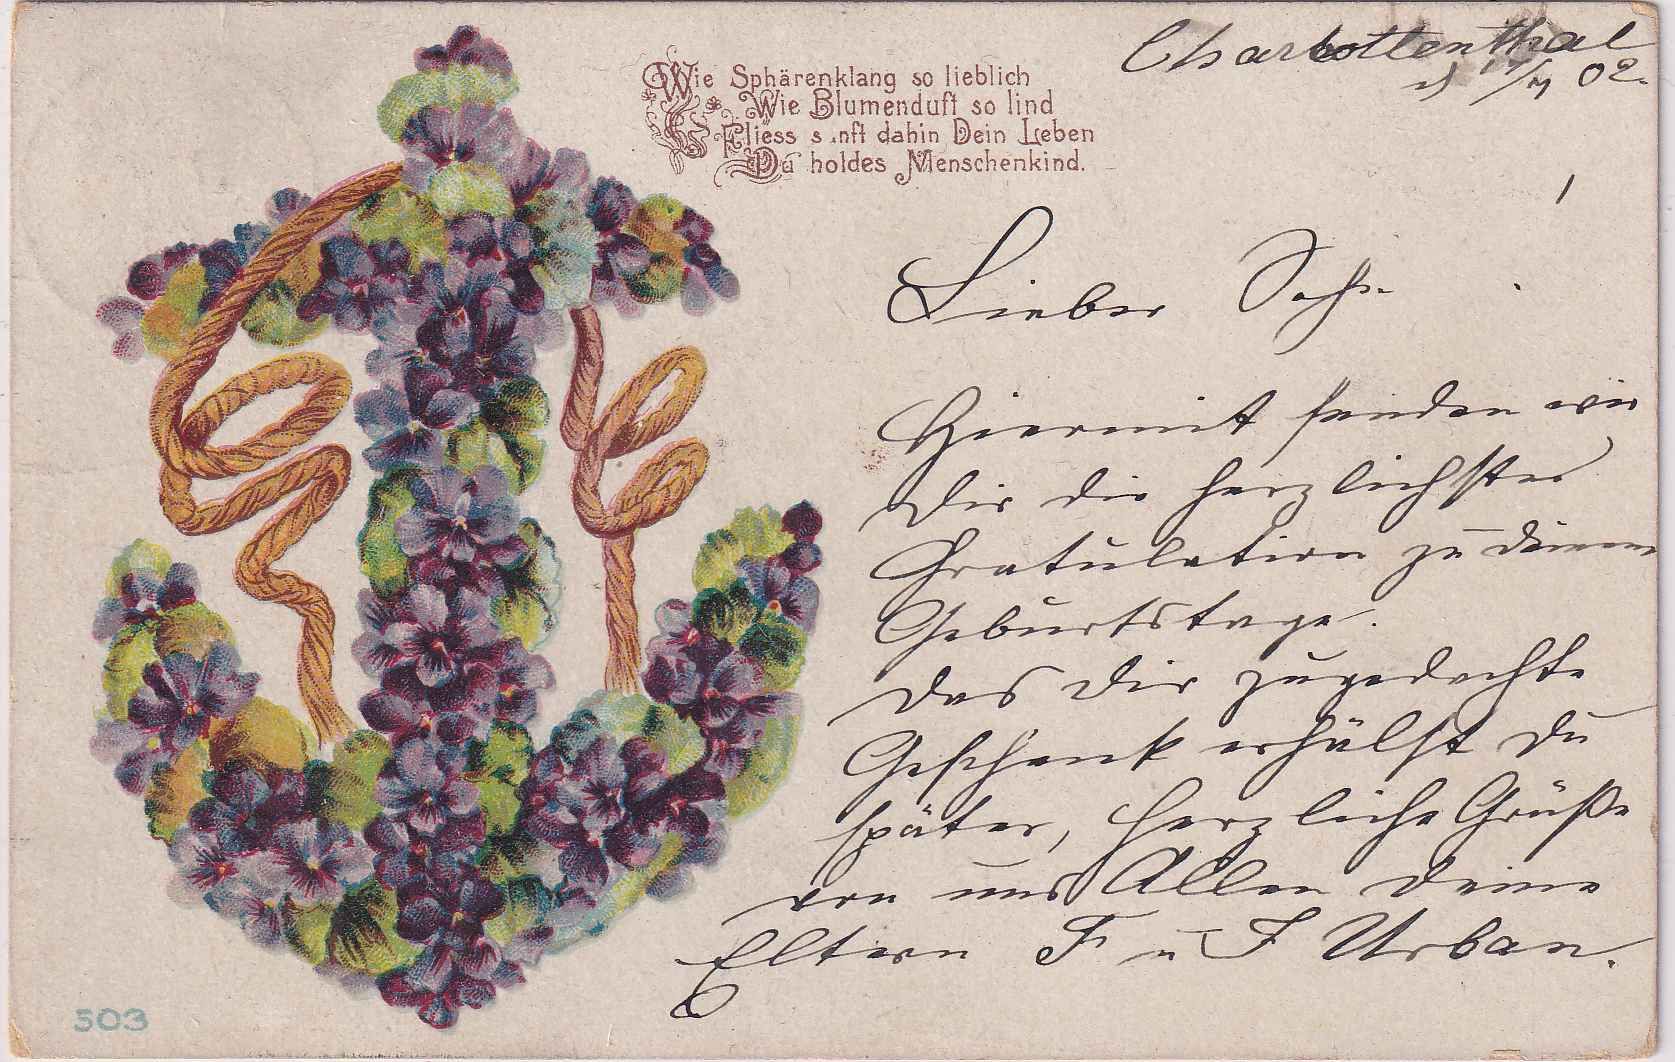 Charlottenthal
d 1/7 02.
Wie Sphärenklang so lieblich
Wie Blumenduft so lind
Fliess s nft dahin Dein Leben
Du holdes Menschenkind.
Lieber Sohn
Hiermit senden wir
Dir die herzlichsten
Gratulation zu deinem
Geburtstage.
das dir zugedachte
Geschenk erhälst du
später, herzliche Grüße
von uns Allen deine
Eltern F u F Urban.
503